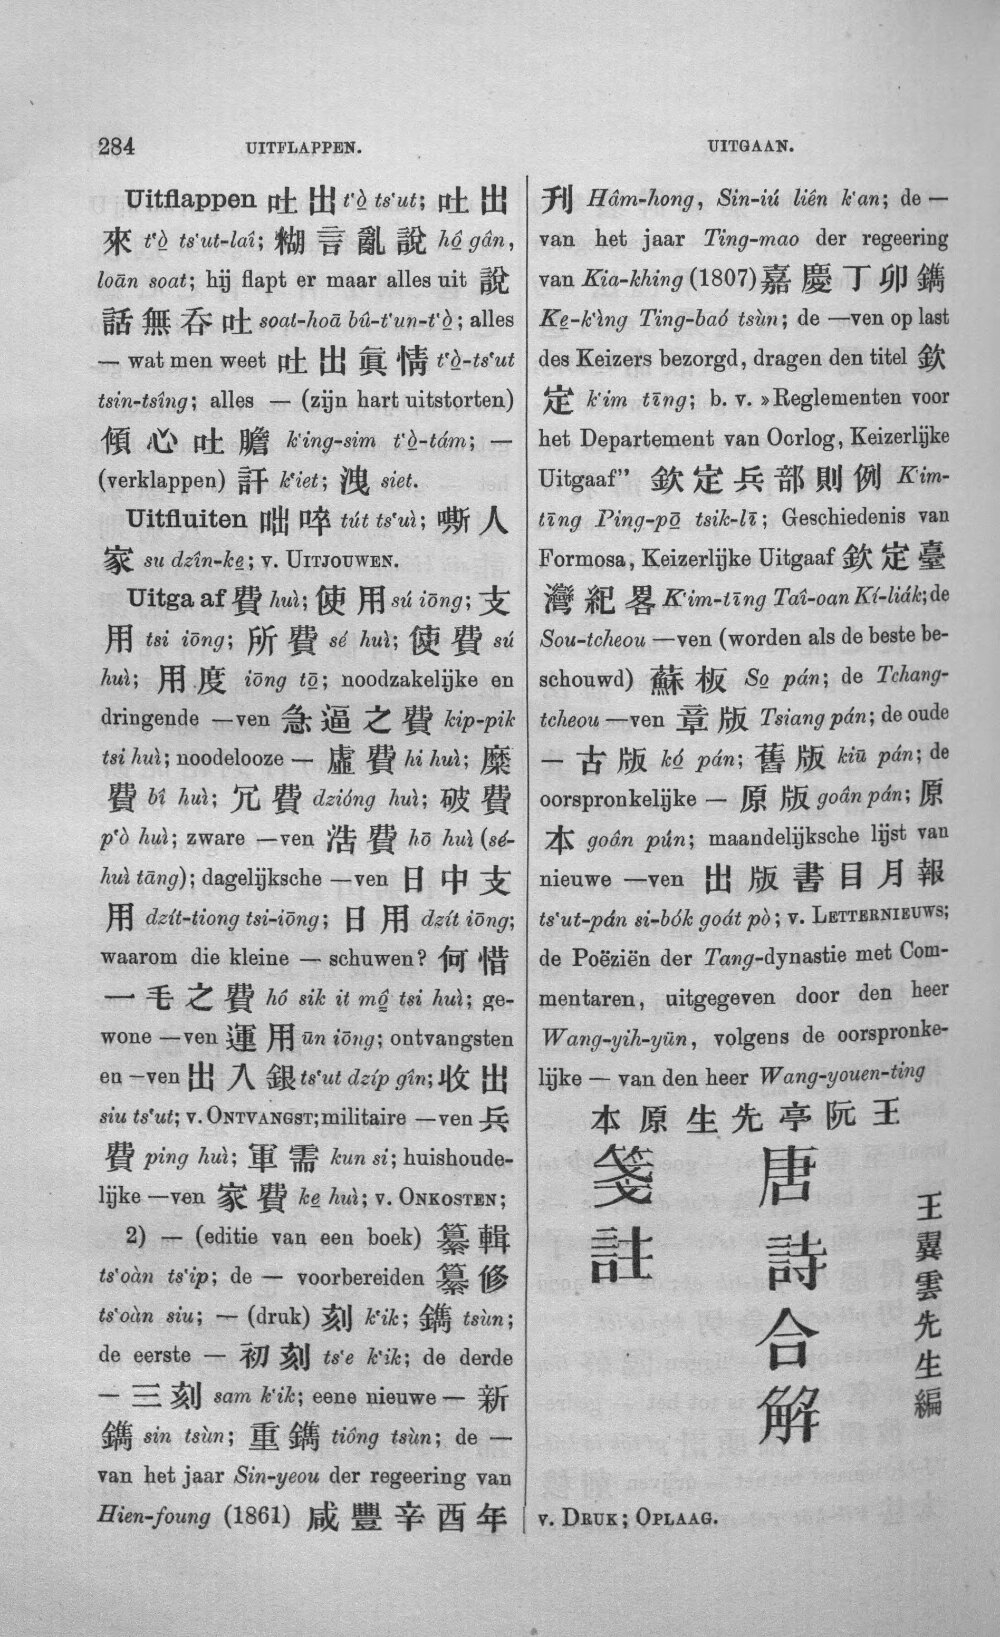 284 UITFLAPPEN. UITGAAN.
Uitflappen 吐出 t‘ò̤ ts‘ut; 吐出
來 t‘ò̤ ts‘ut-laî; 糊言亂說 hô̤ gân,
loān soat; hij flapt er maar alles uit 說
話無吞吐 soat-hoā bû-t‘un-t‘ò̤; alles
— wat men weet 吐出眞情 t‘ò̤-ts‘ut
tsin-tsîng; alles — (zijn hart uitstorten)
傾心吐膽 k‘ing-sim t‘ò̤-tám; —
(verklappen) 訐 k‘iet; 洩 siet.
Uitfluiten 咄啐 tút ts‘uì; 嘶人
家 su dzîn-ke̤; v. UITJOUWEN.
Uitgaaf 費 huì; 使用 sú iōng; 支
用 tsi iōng; 所費 sé huì; 使費 sú
huì; 用度 iōng tō̤; noodzakelijke en
dringende —ven 急逼之費 kip-pik
tsi huì; noodelooze — 虛費 hi huì; 糜
費 bî huì; 冗費 dzióng huì; 破費
p‘ò huì; zware —ven 浩費 hō huì (sé-
huì tāng); dagelijksche —ven 日中支
用 dzít-tiong tsi-iōng; 日用 dzít iōng;
waarom die kleine — schuwen? 何惜
一毛之費 hô sik it mô̤ tsi huì; ge-
wone —ven 運用 ūn iōng; ontvangsten
en —ven 出入銀 ts‘ut dzíp gîn; 收出
siu ts‘ut; v. ONTVANGST; militaire —ven 兵
費 ping huì; 軍需 kun si; huishoude-
lijke —ven 家費 ke̤ huì; v. ONKOSTEN;
2) — (editie van een boek) 纂輯
ts‘oàn ts‘ip; de — voorbereiden 纂修
ts‘oàn siu; — (druk) 刻 k‘ik; 鐫 tsùn;
de eerste — 初刻 ts‘e k‘ik; de derde
— 三刻 sam k‘ik; eene nieuwe — 新
鐫 sin tsùn; 重鐫 tióng tsùn; de —
van het jaar Sin-yeou der regeering van
Hien-foung (1861) 咸豐辛酉年
刋 Hâm-hong, Sin-iú liên k‘an; de —
van het jaar Ting-mao der regeering
van Kia-khing (1807) 嘉慶丁卯鐫
Ke̤-k‘ìng Ting-baó tsùn; de —ven op last
des Keizers bezorgd, dragen den titel 欽
定 k‘im tīng; b. v. »Reglementen voor
het Departement van Oorlog, Keizerlijke
Uitgaaf” 欽定兵部則例 K‘im-
tīng Ping-pō̤ tsik-lī; Geschiedenis van
Formosa, Keizerlijke Uitgaaf 欽定臺
灣紀畧 K‘im-tīng Taî-oan Kí-liák; de
Sou-tcheou —ven (worden als de beste be-
schouwd) 蘇板 So̤ pán; de Tchang-
tcheou —ven 章版 Tsiang pán; de oude
— 古版 kó̤ pán; 舊版 kiū pán; de
oorspronkelijke — 原版 goân pán; 原
本 goân pún; maandelijksche lijst van
nieuwe —ven 出版書目月報
ts‘ut-pán si-bók goát pò; v. LETTERNIEUWS;
de Poëziën der Tang-dynastie met Com-
mentaren, uitgegeven door den heer
Wang-yih-yün, volgens de oorspronke-
lijke — van den heer Wang-youen-ting
本原生先亭阮王
王翼雲先生編
唐詩合解
箋註
v. DRUK; OPLAAG.